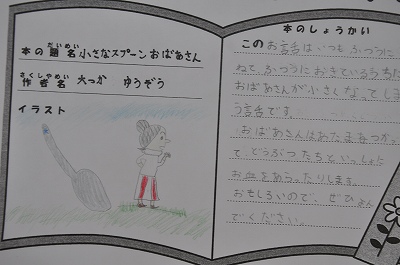 だいめい
本の題名 小さなスプーンおばあさん
さくしゃめい
作者名 大っか ゆうぞう
イラスト
本のしょうかい
このお話は、いつもふつうに
ねて、ふつうにおきているうちに
おばあさんが小さくなってしま
う話です。
おばあさんはあたまをつかっ
て、どうぶつたちといっしょに
お皿をあらったりします。
おもしろいので、ぜひよん
でください。